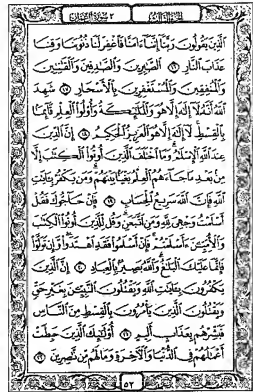 الجزء الثالث ٣ سورة آل عمران
الَّذِينَ يَقُولُونَ رَبَّنَآ إِنَّنَآ ءَامَنَّا فَاغْفِرْ لَنَا ذُنُوبَنَا وَقِنَا
عَذَابَ النَّارِ ١٦ الصَّٰبِرِينَ وَالصَّٰدِقِينَ وَالْقَٰنِتِينَ
وَالْمُنفِقِينَ وَالْمُسْتَغْفِرِينَ بِالْأَسْحَارِ ١٧ شَهِدَ
اللَّهُ أَنَّهُ لَآ إِلَٰهَ إِلَّا هُوَ وَالْمَلَٰٓئِكَةُ وَأُولُوا الْعِلْمِ قَآئِمًا
بِالْقِسْطِ لَآ إِلَٰهَ إِلَّا هُوَ الْعَزِيزُ الْحَكِيمُ ١٨ إِنَّ الدِّينَ
عِندَ اللَّهِ الْإِسْلَٰمُ وَمَا اخْتَلَفَ الَّذِينَ أُوتُوا الْكِتَٰبَ إِلَّا
مِنْ بَعْدِ مَا جَآءَهُمُ الْعِلْمُ بَغْيًا بَيْنَهُمْ وَمَن يَكْفُرْ بِـَٔايَٰتِ
اللَّهِ فَإِنَّ اللَّهَ سَرِيعُ الْحِسَابِ ١٩ فَإِنْ حَآجُّوكَ فَقُلْ
أَسْلَمْتُ وَجْهِيَ لِلَّهِ وَمَنِ اتَّبَعَنِ وَقُل لِّلَّذِينَ أُوتُوا الْكِتَٰبَ
وَالْأُمِّيِّـۧنَ ءَأَسْلَمْتُمْ فَإِنْ أَسْلَمُوا فَقَدِ اهْتَدَوا وَّإِن تَوَلَّوْا
فَإِنَّمَا عَلَيْكَ الْبَلَٰغُ وَاللَّهُ بَصِيرٌ بِالْعِبَادِ ٢٠ إِنَّ الَّذِينَ
يَكْفُرُونَ بِـَٔايَٰتِ اللَّهِ وَيَقْتُلُونَ النَّبِيِّـۧنَ بِغَيْرِ حَقٍّ
وَيَقْتُلُونَ الَّذِينَ يَأْمُرُونَ بِالْقِسْطِ مِنَ النَّاسِ
فَبَشِّرْهُم بِعَذَابٍ أَلِيمٍ ٢١ أُولَٰٓئِكَ الَّذِينَ حَبِطَتْ
أَعْمَٰلُهُمْ فِي الدُّنْيَا وَالْأٓخِرَةِ وَمَا لَهُم مِّن نَّٰصِرِينَ ٢٢
٥٢